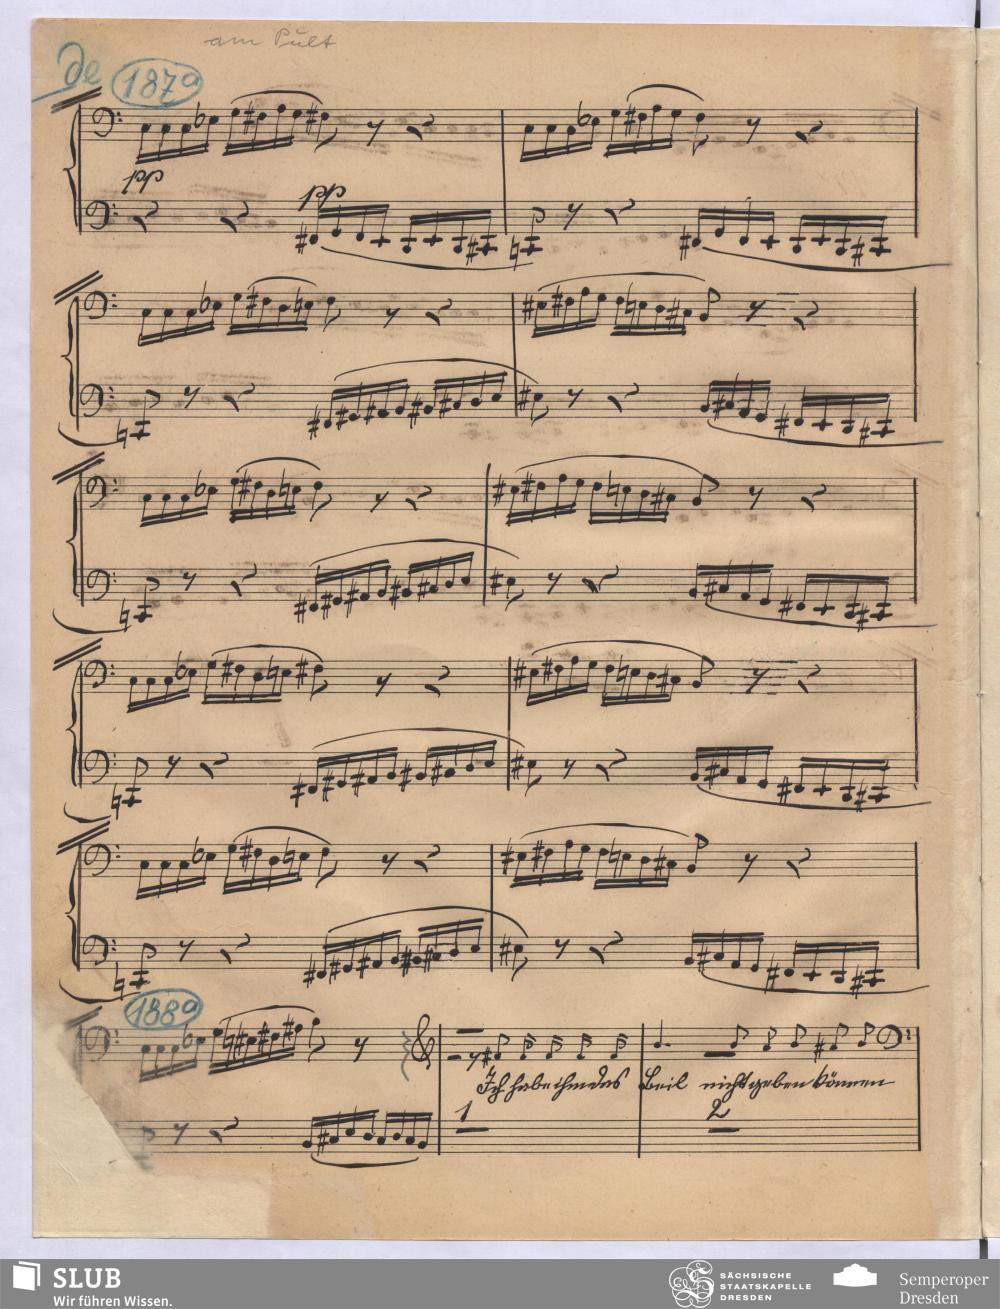 am Pult
de 1879
pp
pp
1889
Ich habe ihm das Beil nicht geben können
1 2
SLUB
Wir führen Wissen.
SÄCHSISCHE
STAATSKAPELLE
DRESDEN
Semperoper
Dresden